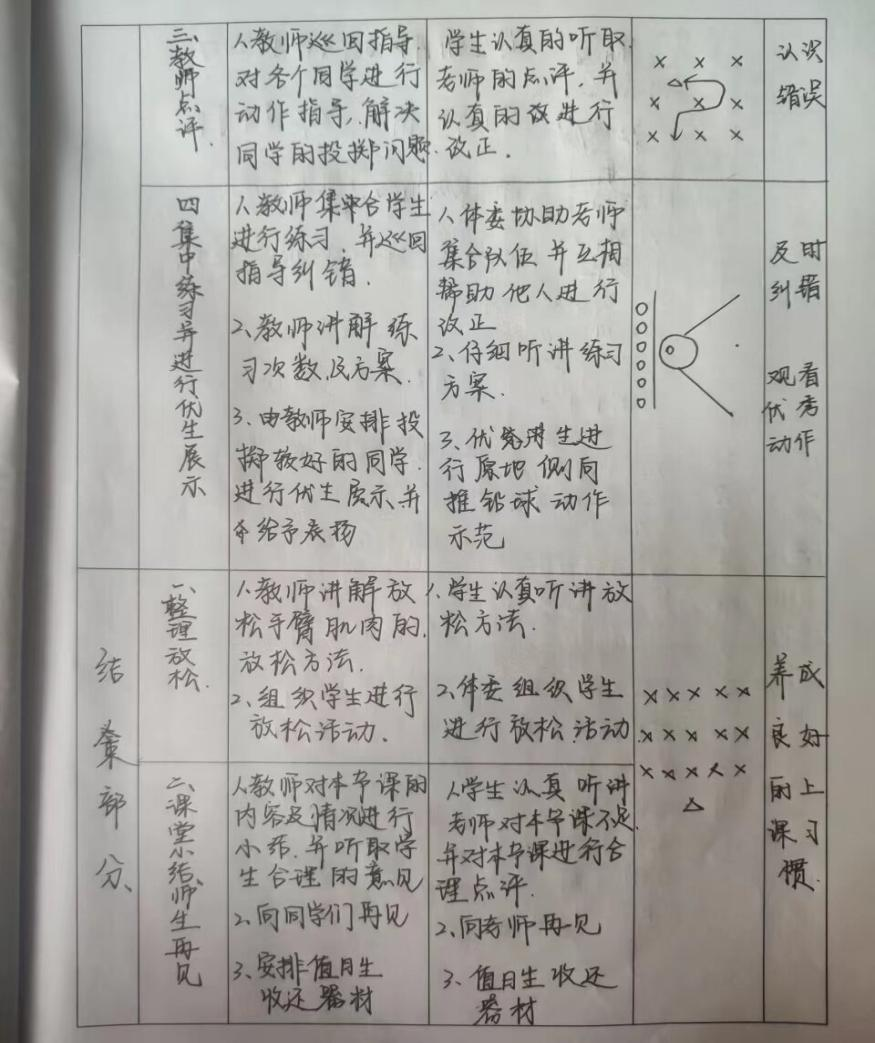 三、教师点评.
1.教师巡回指导.
对各个同学进行
动作指导,解决
同学的投掷问题.
学生认真的听取
老师的点评,并
认真的改进行
改正.
认识
错误
四集中练习并进行优生展示
1.教师集中合学生
进行练习,并巡回
指导纠错.
2、教师讲解练
习次数及方案.
3、由教师安排投
掷较好的同学.
进行优生展示并
给予表扬
1.体委协助老师
集合队伍并互相
帮助他人进行
改正
2、仔细听讲练习
方案.
3、优秀学生进
行原地侧向
推铅球动作
示范
及时
纠错
观看
优秀
动作
结束部分、
一、整理放松.
1.教师讲解放
松手臂肌肉的.
放松方法.
2、组织学生进行
放松活动.
1.学生认真听讲放
松方法.
2、体委组织学生
进行放松活动
养成
良好
的上
课习
惯.
二、课堂小结、师生再见
1.教师对本节课的
内容及情况进行
小结.并听取学
生合理的意见
2、向同学们再见
3、安排值日生
收还器材
1.学生认真听讲
老师对本节课不足
并对本节课进行合
理点评.
2、向老师再见
3、值日生收还
器材